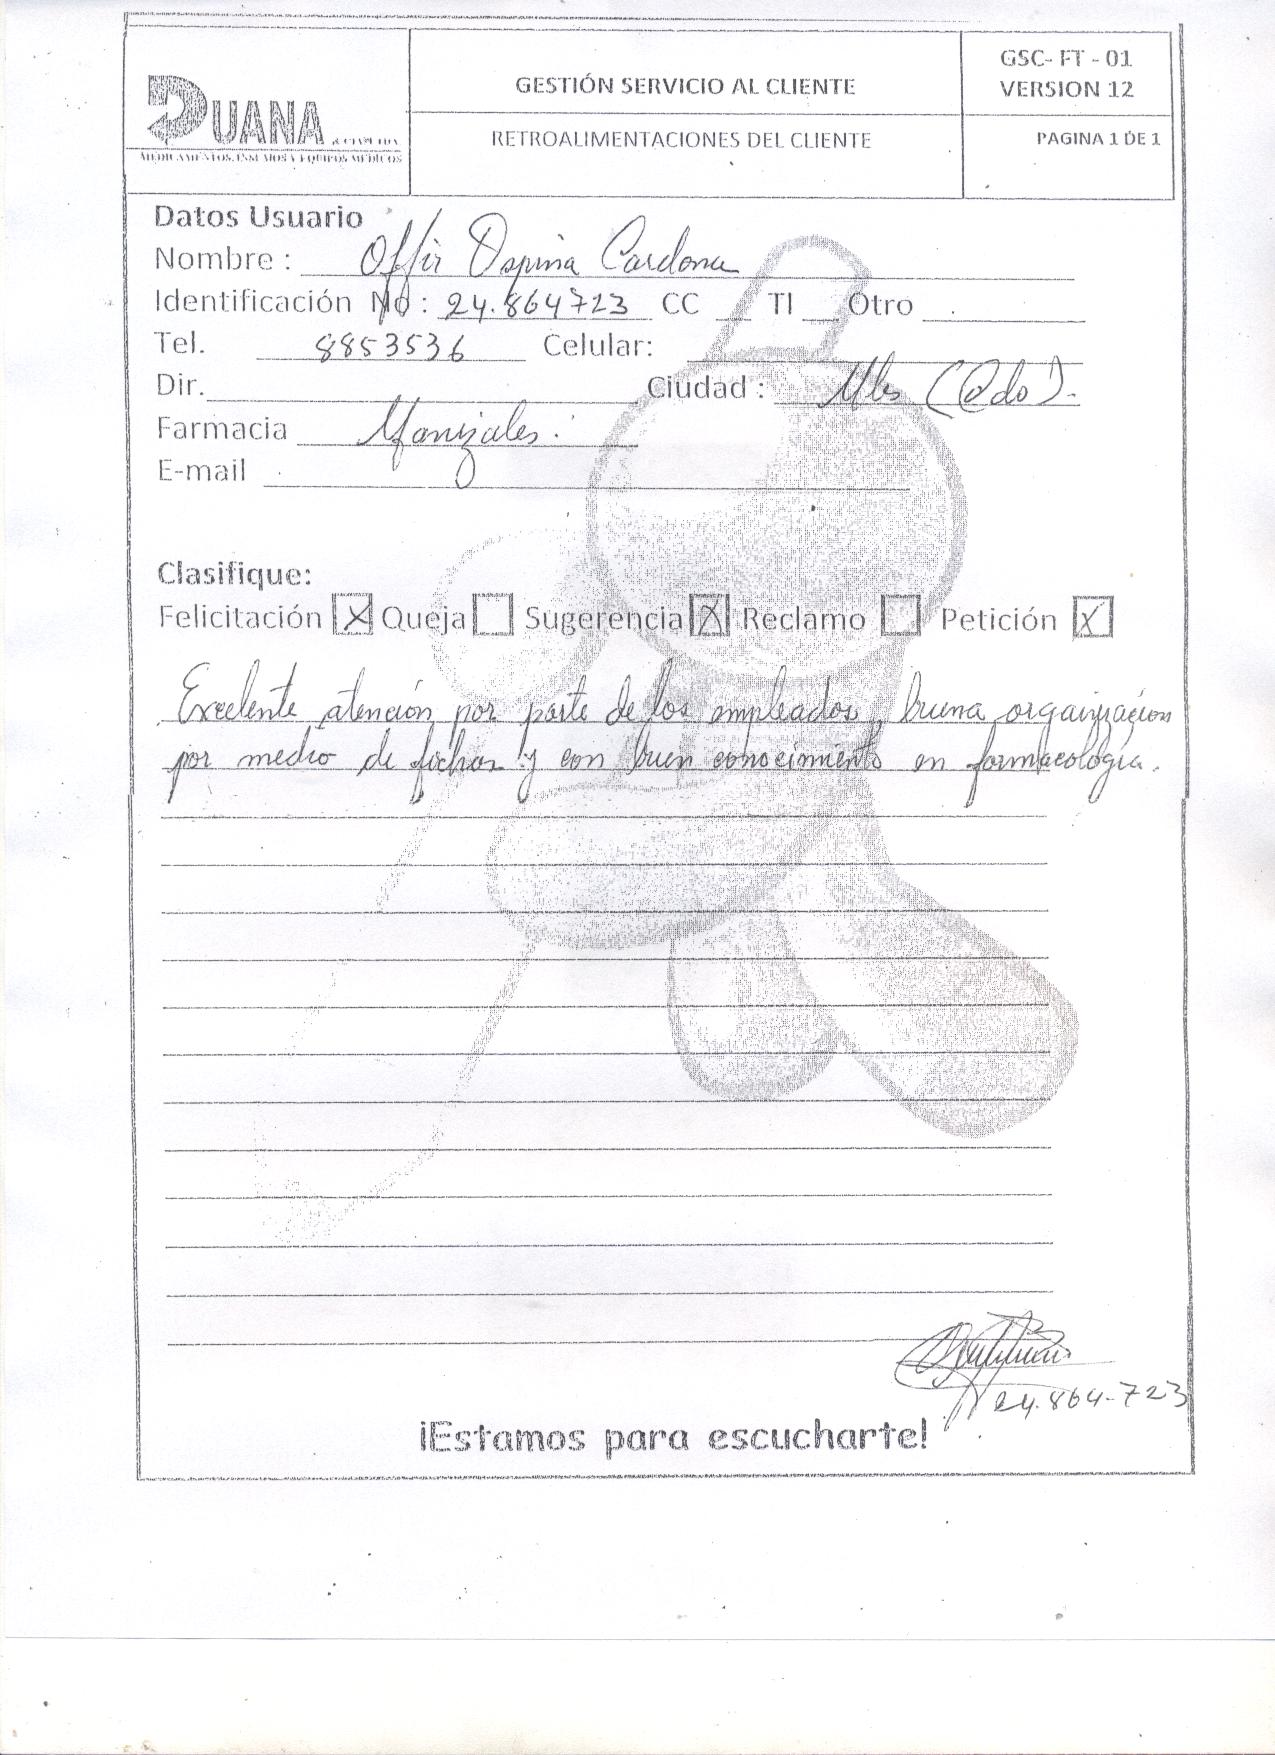 DUANA & CIA LTDA.
MEDICAMENTOS, INSUMOS Y EQUIPOS MÉDICOS
GESTIÓN SERVICIO AL CLIENTE
RETROALIMENTACIONES DEL CLIENTE
GSC- FT - 01
VERSION 12
PAGINA 1 DE 1
Datos Usuario
Nombre : Offir Ospina Cardona
Identificación No : 24.864723 CC __ TI __ Otro
Tel. 8853536 Celular:
Dir. Ciudad : Mls (Cdo).
Farmacia Manizales.
E-mail
Clasifique:
Felicitación X Queja Sugerencia X Reclamo Petición X
Excelente atención por parte de los empleados, buena organización
por medio de fichas y con buen conocimiento en farmacología.
24.864-723
¡Estamos para escucharte!